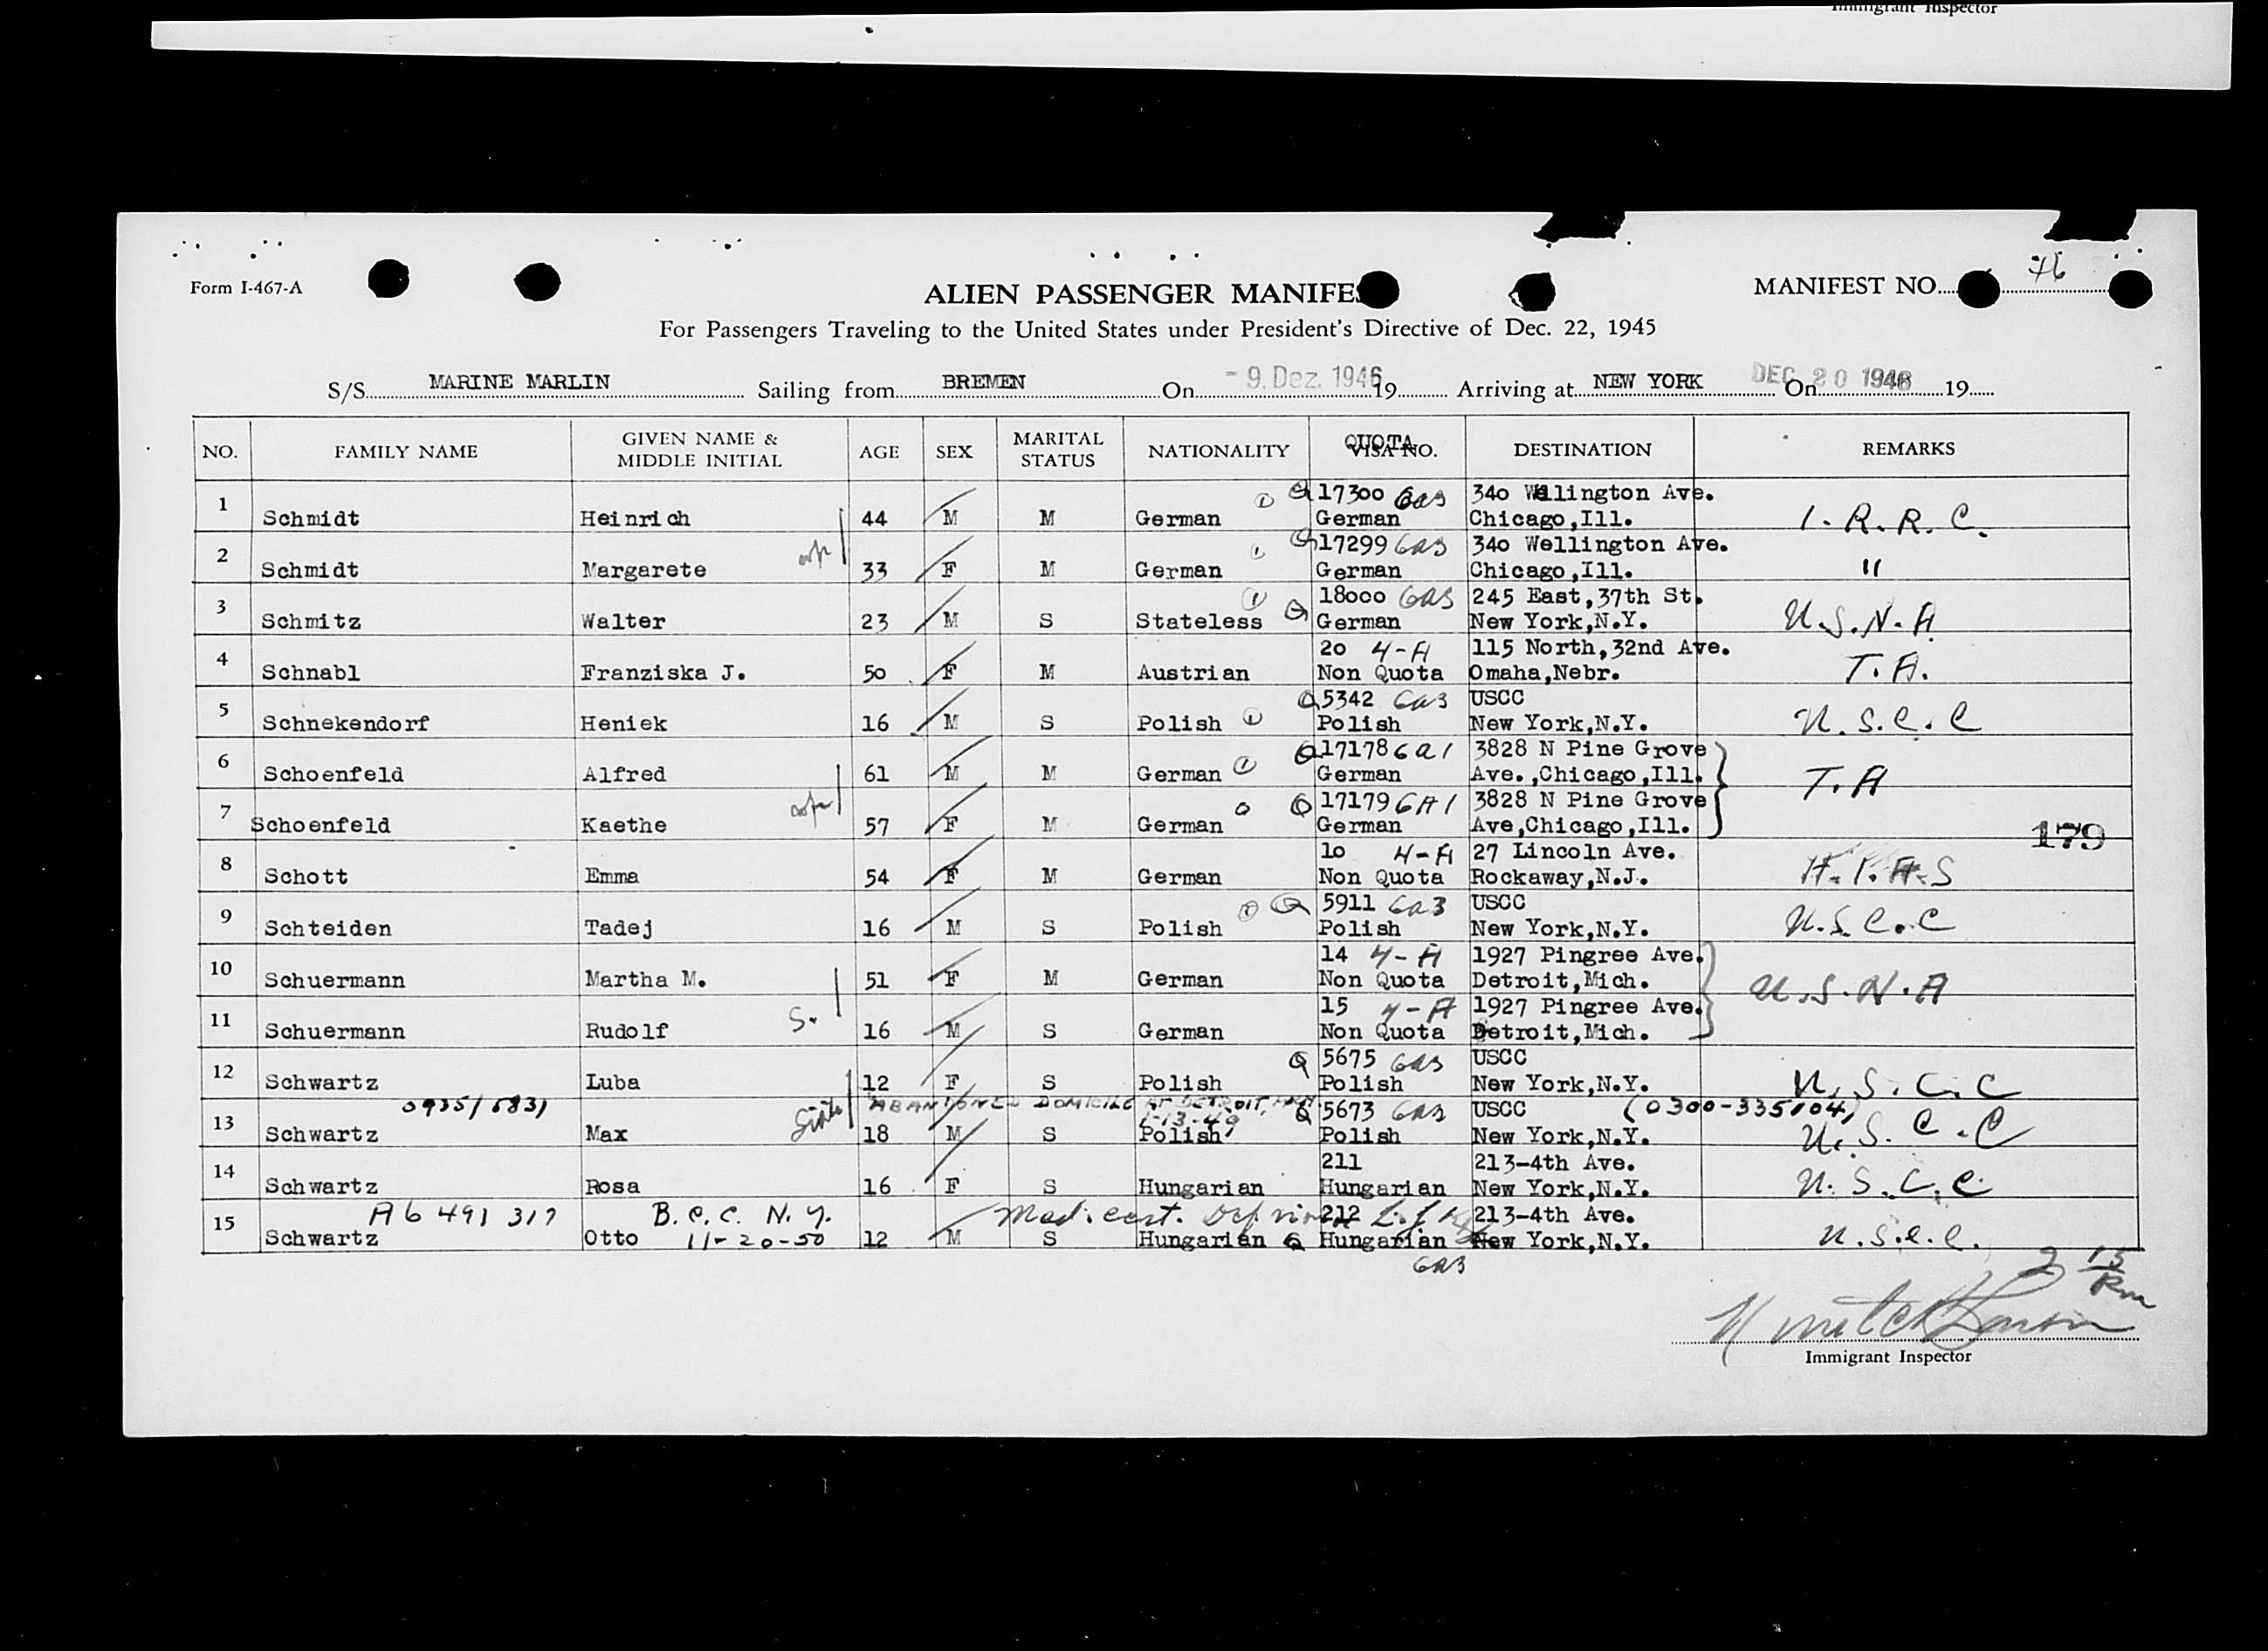 Immigrant Inspector
Form I-467-A
ALIEN PASSENGER MANIFES
MANIFEST NO. 76
For Passengers Traveling to the United States under President's Directive of Dec. 22, 1945
S/S MARINE MARLIN Sailing from BREMEN On - 9. Dez. 1946 19 Arriving at NEW YORK On DEC 20 1946 19
NO. FAMILY NAME GIVEN NAME & MIDDLE INITIAL AGE SEX MARITAL STATUS NATIONALITY QUOTA VISA NO. DESTINATION REMARKS
1 Schmidt Heinrich 44 M M German 17300 6a3 German 340 Wllington Ave. Chicago,Ill. I.R.R.C.
2 Schmidt Margarete 33 F M German 17299 6a3 German 340 Wellington Ave. Chicago,Ill. "
3 Schmitz Walter 23 M S Stateless 18000 6a3 German 245 East,37th St. New York,N.Y. U.S.N.A
4 Schnabl Franziska J. 50 F M Austrian 20 4-A Non Quota 115 North,32nd Ave. Omaha,Nebr. T.A.
5 Schnekendorf Heniek 16 M S Polish 5342 6a3 Polish USCC New York,N.Y. U.S.C.C
6 Schoenfeld Alfred 61 M M German 17178 6a1 German 3828 N Pine Grove Ave.,Chicago,Ill. T.A
7 Schoenfeld Kaethe 57 F M German 17179 6A1 German 3828 N Pine Grove Ave,Chicago,Ill.
179
8 Schott Emma 54 F M German 10 4-A Non Quota 27 Lincoln Ave. Rockaway,N.J. H.I.A.S
9 Schteiden Tadej 16 M S Polish 5911 6a3 Polish USCC New York,N.Y. U.S.C.C
10 Schuermann Martha M. 51 F M German 14 4-A Non Quota 1927 Pingree Ave. Detroit,Mich. U.S.N.A
11 Schuermann Rudolf S. 16 M S German 15 4-A Non Quota 1927 Pingree Ave. Detroit,Mich.
12 Schwartz Luba 12 F S Polish 5675 6a3 Polish USCC New York,N.Y. U.S.C.C
0935/6831 ABANDONED DOMICILE AT DETROIT, 1-13-49 (0300-335104)
13 Schwartz Max 18 M S Polish 5673 6a3 Polish USCC New York,N.Y. U.S.C.C
14 Schwartz Rosa 16 F S Hungarian 211 Hungarian 213-4th Ave. New York,N.Y. U.S.C.C.
A6 491 317 B.C.C. N.Y. 11-20-50 Med. cert.
15 Schwartz Otto 12 M S Hungarian 212 Hungarian 6a3 213-4th Ave. New York,N.Y. U.S.C.C.
Immigrant Inspector